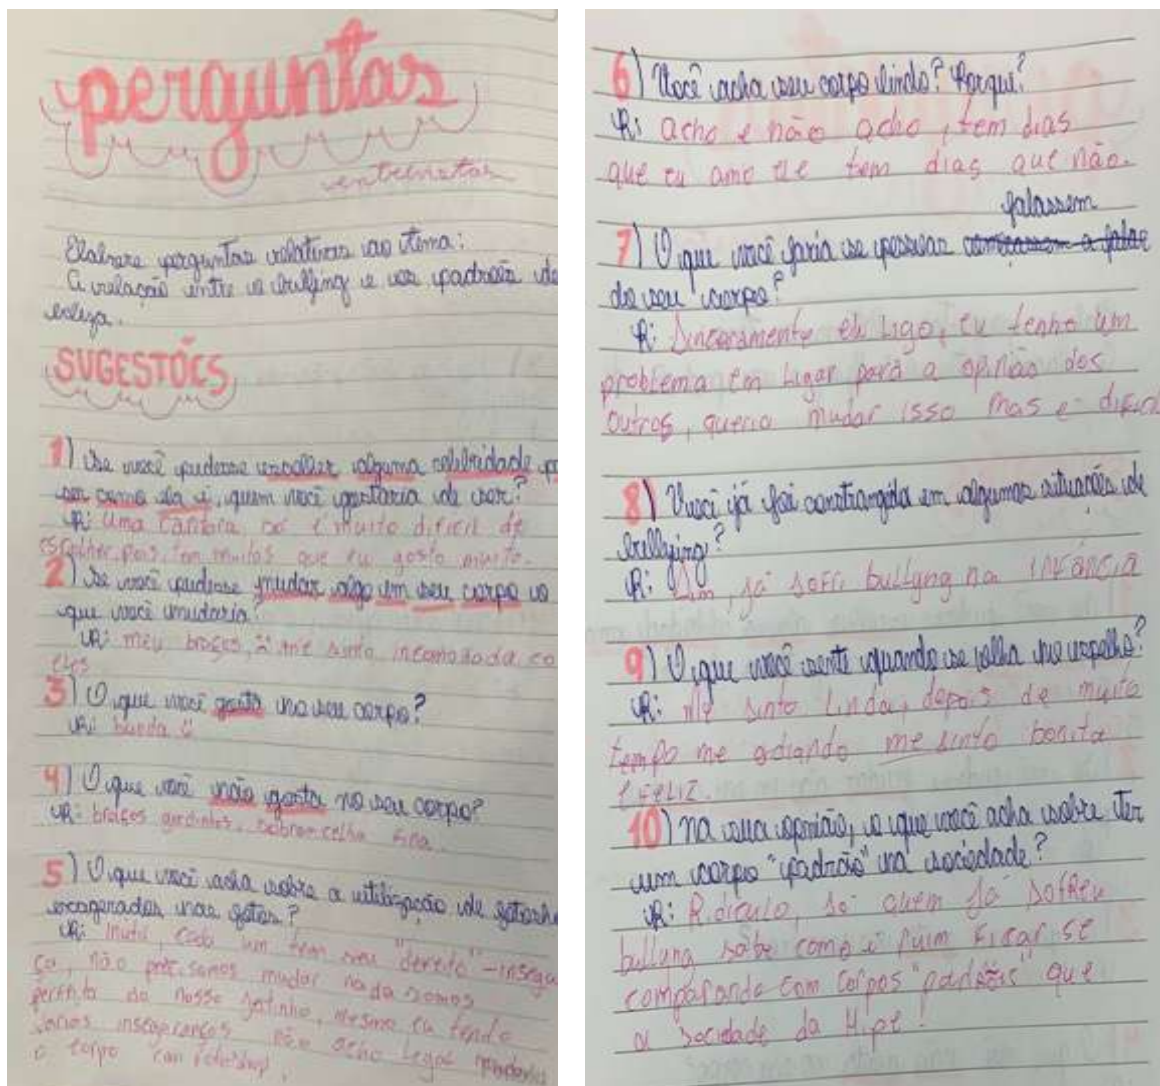 perguntas
entrevistas
Elabore perguntas relativas ao tema:
A relação entre o bulling e os padrões de
beleza.
SUGESTÕES
1) Se você pudesse escolher alguma celebridade p
ser como ela é, quem você gostaria de ser?
R: Uma cantora, só é muito dificil de
escolher, pois tem muitos que eu gosto muito.
2) Se você pudesse mudar algo em seu corpo o
que você mudaria?
R: meu braços, me sinto incomodada co
eles
3) O que você gosta no seu corpo?
R: bunda
4) O que você não gosta no seu corpo?
R: braços gordinhos, sobrancelha fina.
5) O que você acha sobre a utilização de
exagerados nas fotos?
R: Inutil, cada um tem seu "dereito"-insegu
ça, não precisamos mudar nada somos
perfeito do nosso jeitinho, mesmo eu tendo
varias inseguranças não acho legal
o corpo con
6) Você acha seu corpo lindo? Porque?
R: acho e não acho, tem dias
que eu amo ele tem dias que não.
falassem
7) O que você faria se pessoas começassem a falar
do seu corpo?
R: Sinceramente eu ligo, eu tenho um
problema em ligar para a opinião dos
outros, queria mudar isso mas é dificil
8) Você já foi constrangida em algumas situações de
bullying?
R: Sim, já sofri bullyng na infância
9) O que você sente quando se olha no espelho?
R: Me sinto Linda, depois de muito
tempo me odiando me sinto bonita
e FELIZ.
10) Na sua opinião, o que você acha sobre ter
um corpo "padrão" na sociedade?
R: Ridículo, só quem já sofreu
bullyng sabe como é ruim ficar se
comparando com corpos "padrões" que
a sociedade da Hipe!